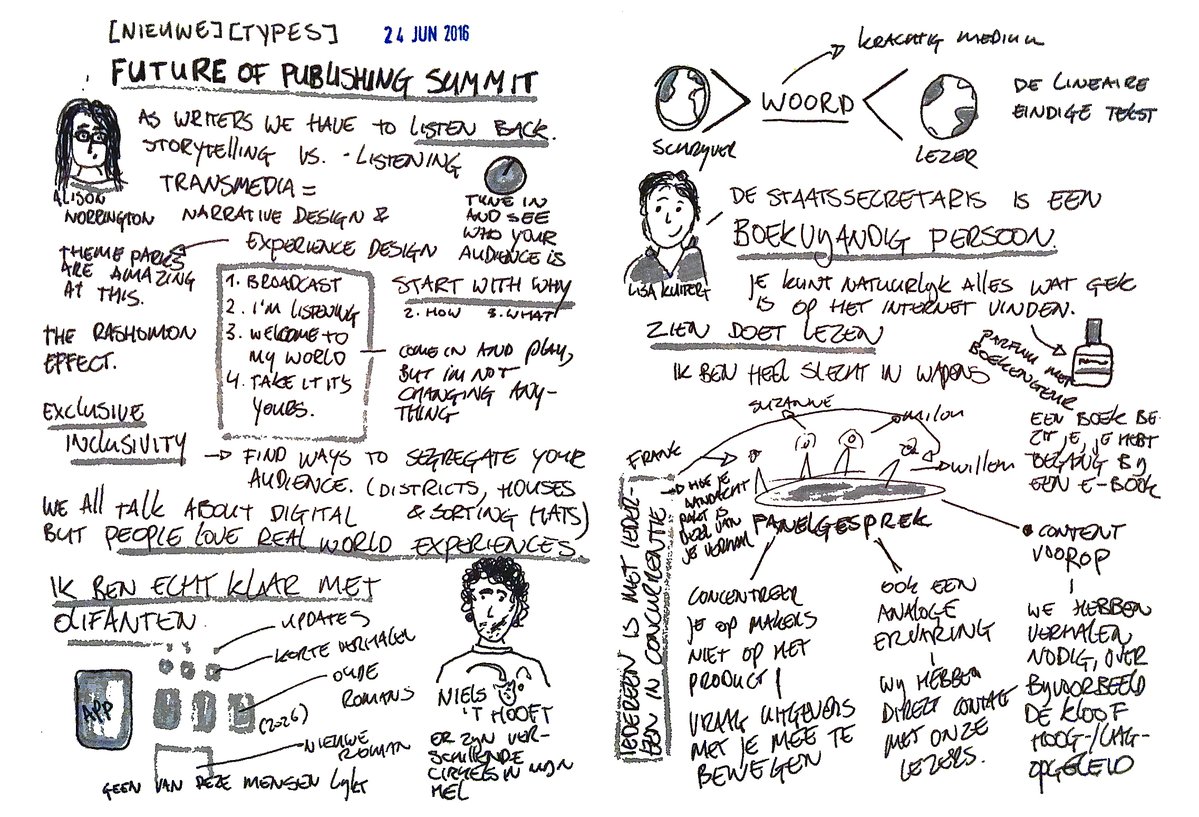 [NIEUWE][TYPES]
24 JUN 2016
FUTURE OF PUBLISHING SUMMIT
AS WRITERS WE HAVE TO LISTEN BACK.
STORYTELLING VS. -LISTENING
TRANSMEDIA =
NARRATIVE DESIGN &
EXPERIENCE DESIGN
ALISON
NORRINGTON
TUNE IN
AND SEE
WHO YOUR
AUDIENCE IS
THEME PARKS
ARE AMAZING
AT THIS.
1. BROADCAST
2. I'M LISTENING
3. WELCOME TO
MY WORLD
4. TAKE IT IT'S
YOURS.
START WITH WHY
2. HOW 3. WHAT
COME IN AND PLAY,
BUT I'M NOT
CHANGING ANY-
THING
THE RASHOMON
EFFECT.
EXCLUSIVE
INCLUSIVITY
FIND WAYS TO SEGREGATE YOUR
AUDIENCE. (DISTRICTS, HOUSES
& SORTING HATS)
WE ALL TALK ABOUT DIGITAL
BUT PEOPLE LOVE REAL WORLD EXPERIENCES.
IK BEN ECHT KLAAR MET
OLIFANTEN.
UPDATES
KORTE VERHALEN
OUDE
ROMANS
(2026)
NIEUWE
ROMAN
APP
GEEN VAN DEZE MENSEN LIJKT
NIELS
'T HOOFT
ER ZIJN VER-
SCHILLENDE
CIRKELS IN MIJN
HEL
KRACHTIG MEDIUM
WOORD
SCHRIJVER
LEZER
DE LINEAIRE
EINDIGE TEKST
LISA KUITERT
DE STAATSSECRETARIS IS EEN
BOEKVIJANDIG PERSOON.
JE KUNT NATUURLIJK ALLES WAT GEK
IS OP HET INTERNET VINDEN.
ZIEN DOET LEZEN
PARFUM MET
BOEKENGEUR
IK BEN HEEL SLECHT IN WAPENS
SUZANNE
MILOU
WILLEM
FRANK
EEN BOEK BE-
ZIT JE, JE HEBT
TOEGANG BIJ
EEN E-BOOK
HOE JE
AANDACHT
PAKT IS
DEEL VAN
JE VERHAAL
IEDEREEN IS MET IEDER-
EEN IN CONCURRENTIE
PANELGESPREK
CONCENTREER
JE OP MAKERS
NIET OP HET
PRODUCT!
VRAAG UITGEVERS
MET JE MEE TE
BEWEGEN
OOK EEN
ANALOGE
ERVARING
WIJ HEBBEN
DIRECT CONTACT
MET ONZE
LEZERS.
CONTENT
VOOROP
WE HEBBEN
VERHALEN
NODIG, OVER
BIJVOORBEELD
DE KLOOF
HOOG-/LAAG-
OPGELEID